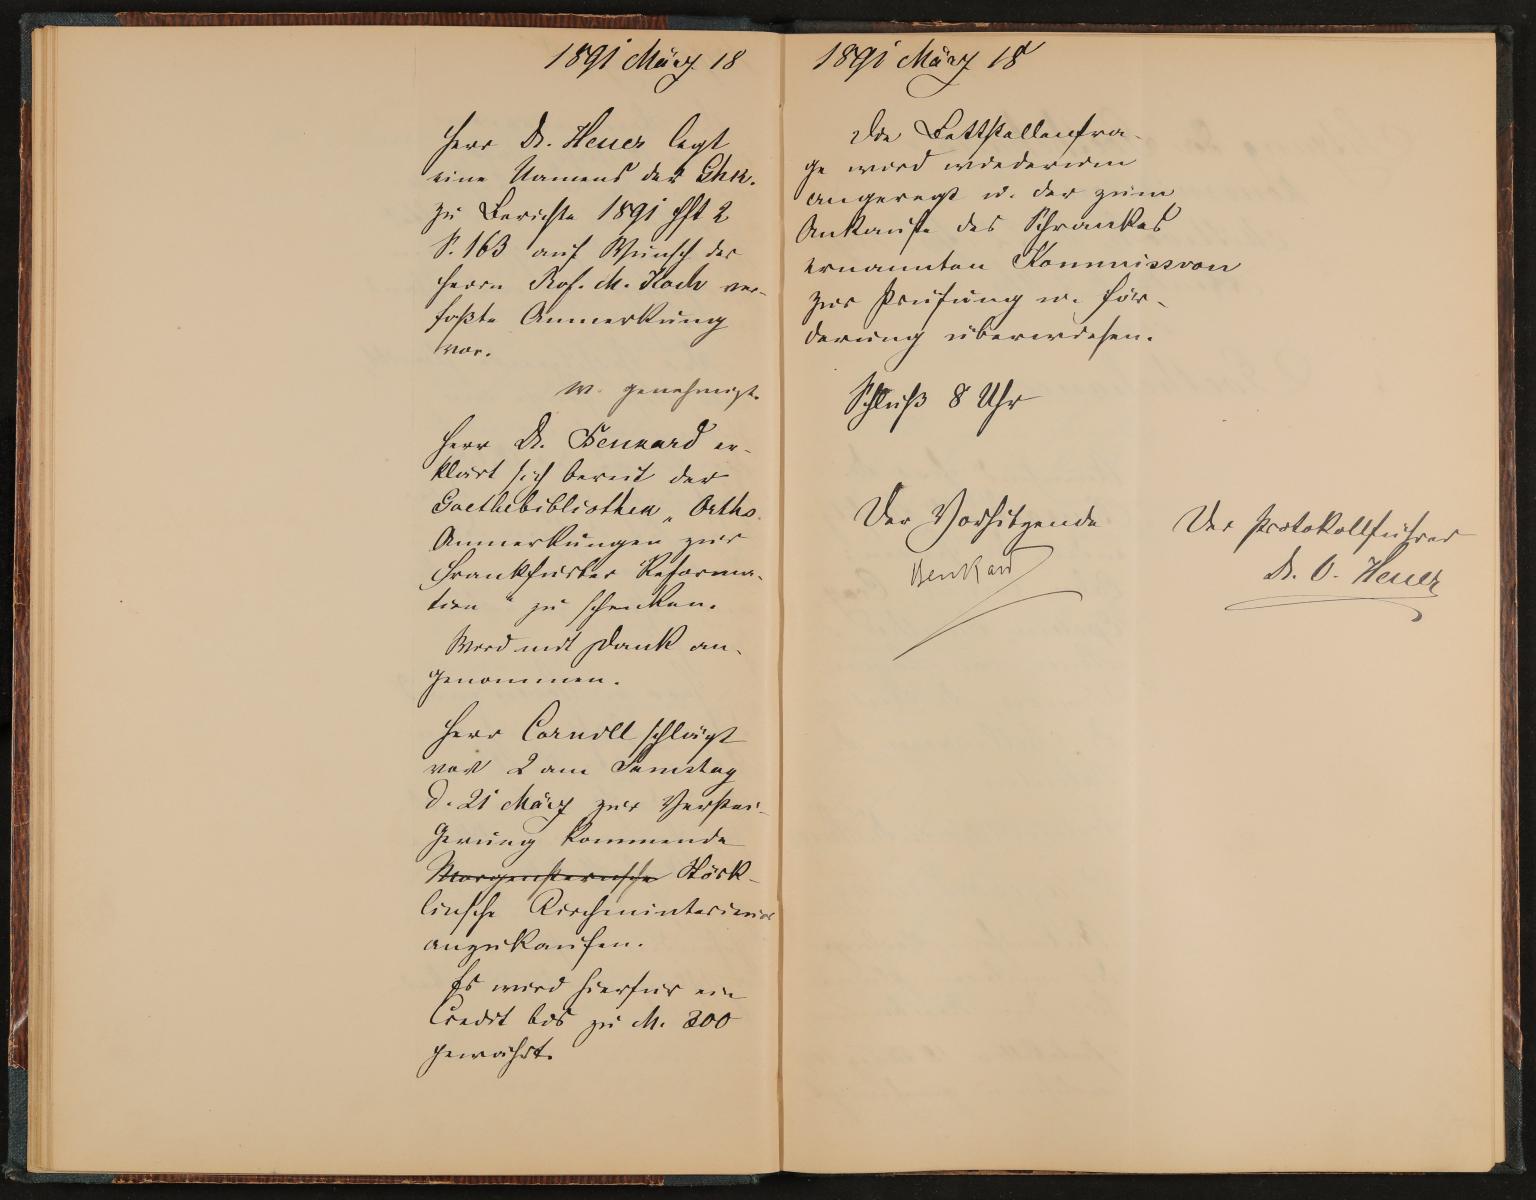 1891 März 18
Herr Dr. Heuer legt
eine Namens der
zu Berichte 1891 Hft 2
S. 163 auf Wunsch des
Herrn Prof. M. Koch ver-
faßte Anmerkung
vor.
w. genehmigt.
Herr Dr. Benkard er-
klärt sich bereit der
Goethebibliothek „Orths
Anmerkungen zur
Frankfurter Reforma-
tion“ zu schenken.
Wird mit Dank an-
genommen.
Herr Cornill schlägt
vor 2 am Samstag
d. 21 März zur Verstei-
gerung kommende
Morgensternsche Stöck-
linsche Kircheninterieurs
anzukaufen.
Es wird hierfür ein
Credit bis zu M. 300
gewährt.
1891 März 18
Die Bettstellenfra-
ge wird wiederum
angeregt u. der zum
Ankaufe des Schrankes
ernannten Kommission
zur Prüfung u. För-
derung überwiesen.
Schluß 8 Uhr
Der Vorsitzende
Benkard
Der Protokollführer
Dr. O. Heuer